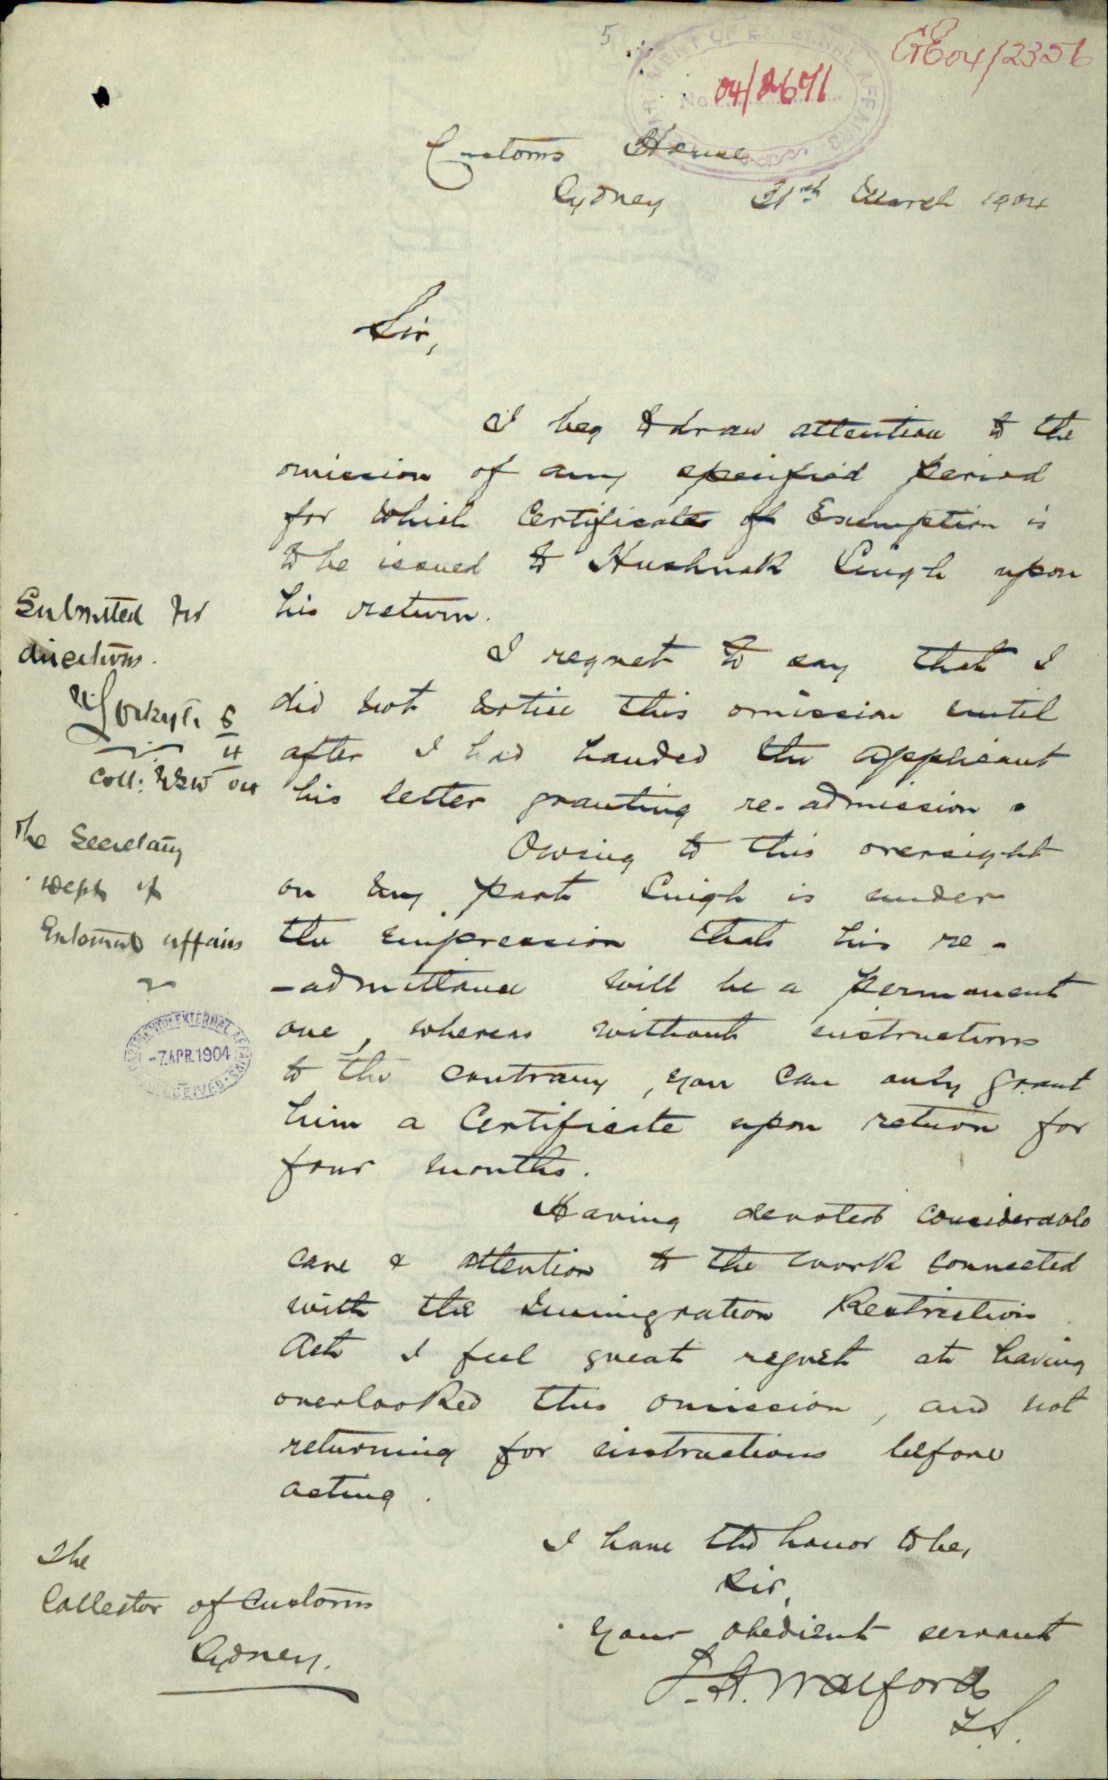 5
G804/2356
DEPARTMENT OF EXTERNAL AFFAIRS
No.
04/2671
Customs House
Sydney 31st March 1904
Sir,
I beg to draw attention to the
omission of any specified period
for which Certificate of Exemption is
to be issued to Kushnak Singh upon
his return.
I regret to say that I
did not notice this omission until
after I had handed the applicant
his letter granting re-admission.
Owing to this oversight
on my part Singh is under
the impression that his re-
-admittance will be a permanent
one, whereas without instructions
to the contrary, you can only grant
him a Certificate upon return for
four months.
Having devoted considerable
care & attention to the work connected
with the Immigration Restriction
Act I feel great regret at having
overlooked this omission, and not
returning for instructions before
acting.
I have the honor to be,
Sir,
your obedient servant
Walford
T.S.
Submitted for
directions.
6
4
Coll: NSW 04
The Secretary
Dept of
External Affairs
EXTERNAL AFFAIRS
-7 APR. 1904
RECEIVED
The
Collector of Customs
Sydney.